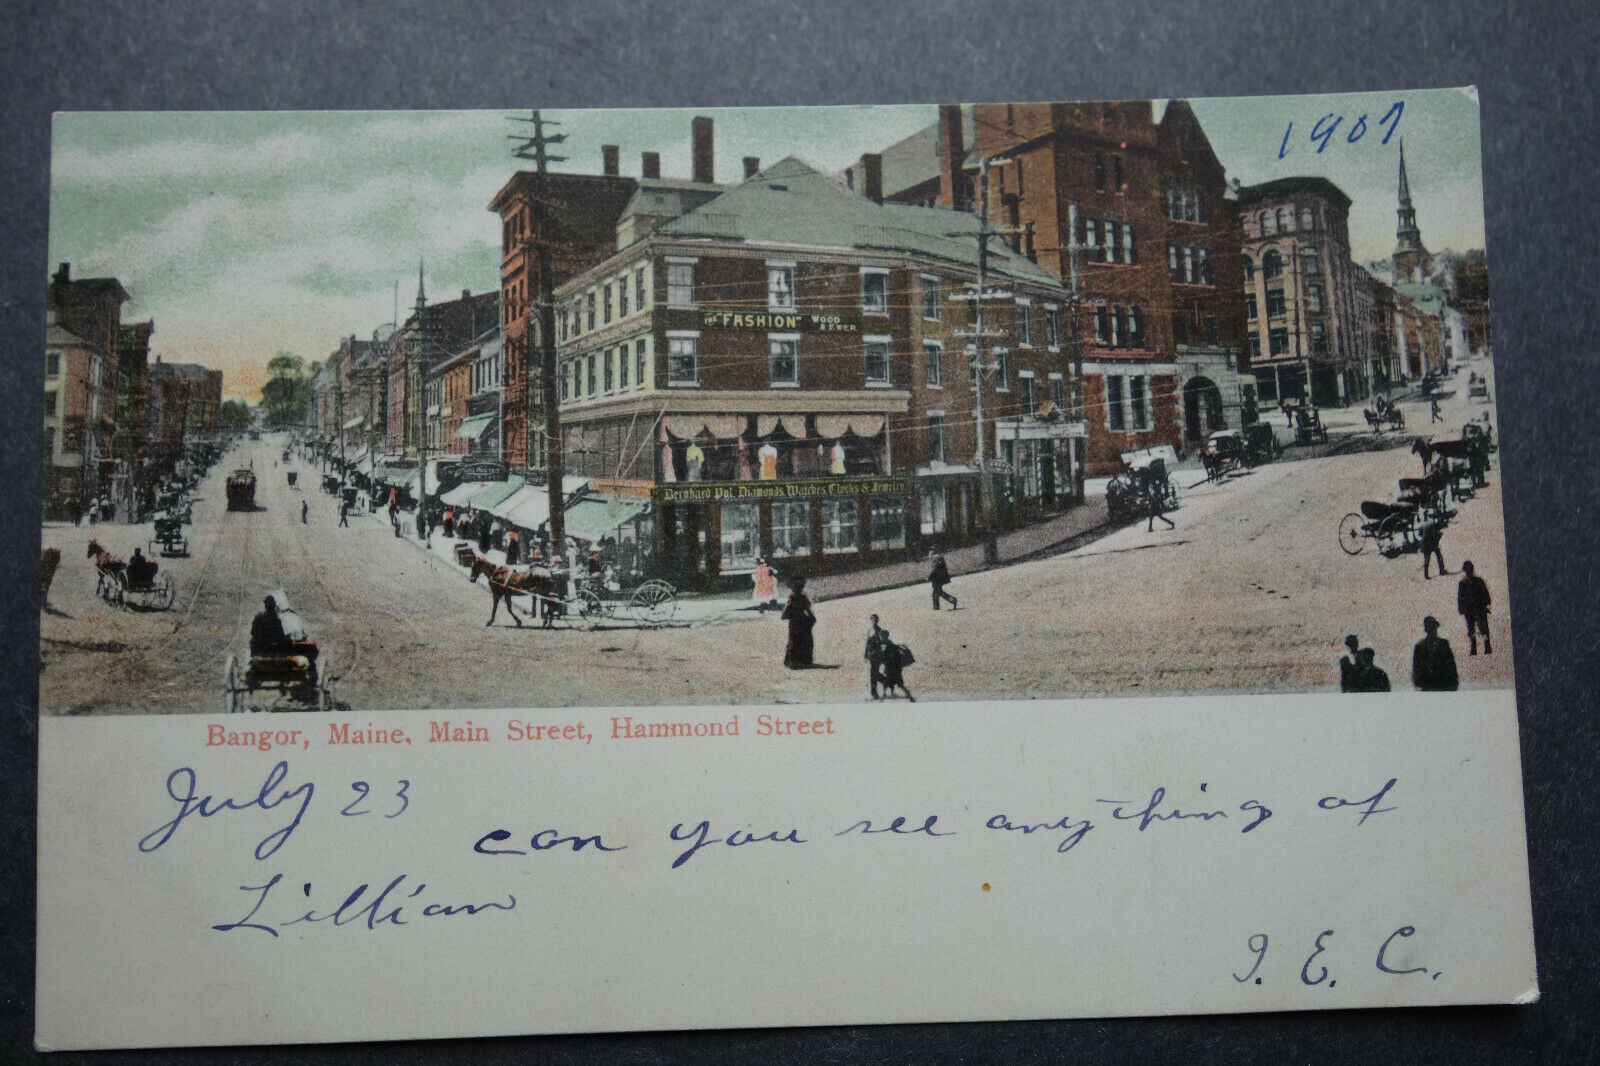 1907
THE "FASHION" WOOD & EWER
Bernhard Pol. Diamonds, Watches, Clocks & Jewelry
Bangor, Maine, Main Street, Hammond Street
July 23 can you see anything of
Lillian
I. E. C.